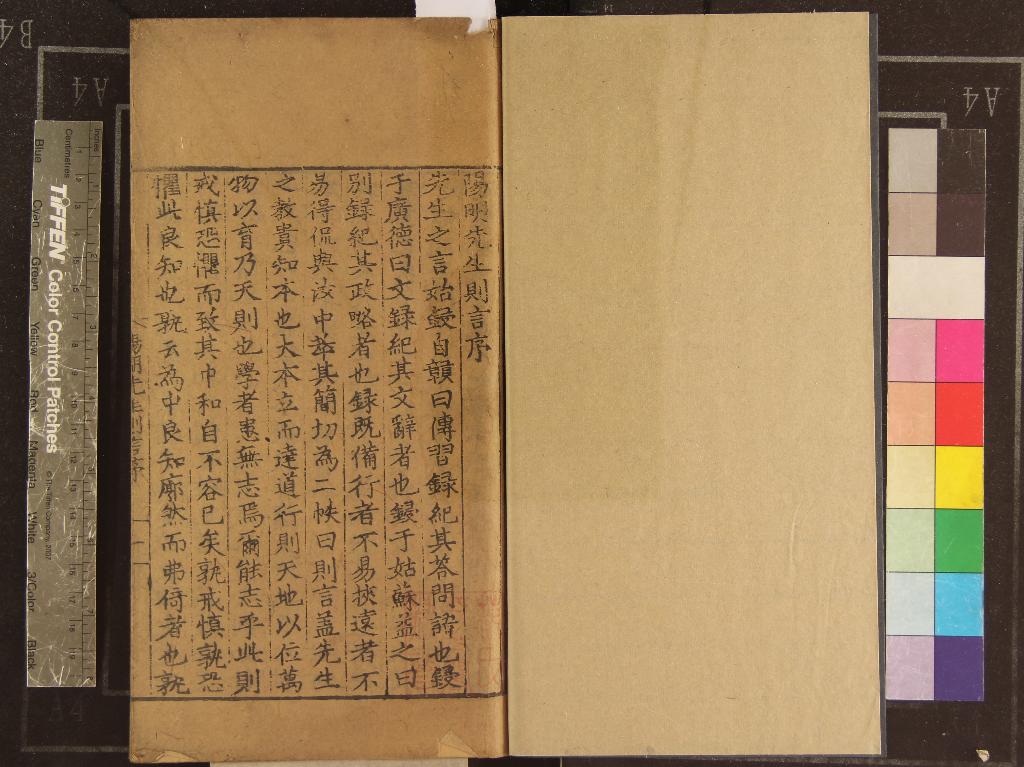 陽明先生則言序
先生之言始鋟自贛曰傳習録紀其答問語也鋟
于廣德曰文録紀其文辭者也鋟于姑蘇益之曰
別録紀其政略者也録既備行者不易挾遠者不
易得侃與汝中萃其簡切為二帙曰則言盖先生
之教貴知本也大本立而達道行則天地以位萬
物以育乃天則也學者患無志焉爾能志乎此則
戒慎恐懼而致其中和自不容已矣孰戒慎孰恐
懼此良知也孰云為中良知廓然而弗倚者也孰
陽明先生則言序
一
TIFFEN Color Control Patches
© The Tiffen Company, 2007
Inches
Centimetres
Blue
Cyan
Green
Yellow
Red
Magenta
White
3/Color
Black
B4
A4
A4
A4